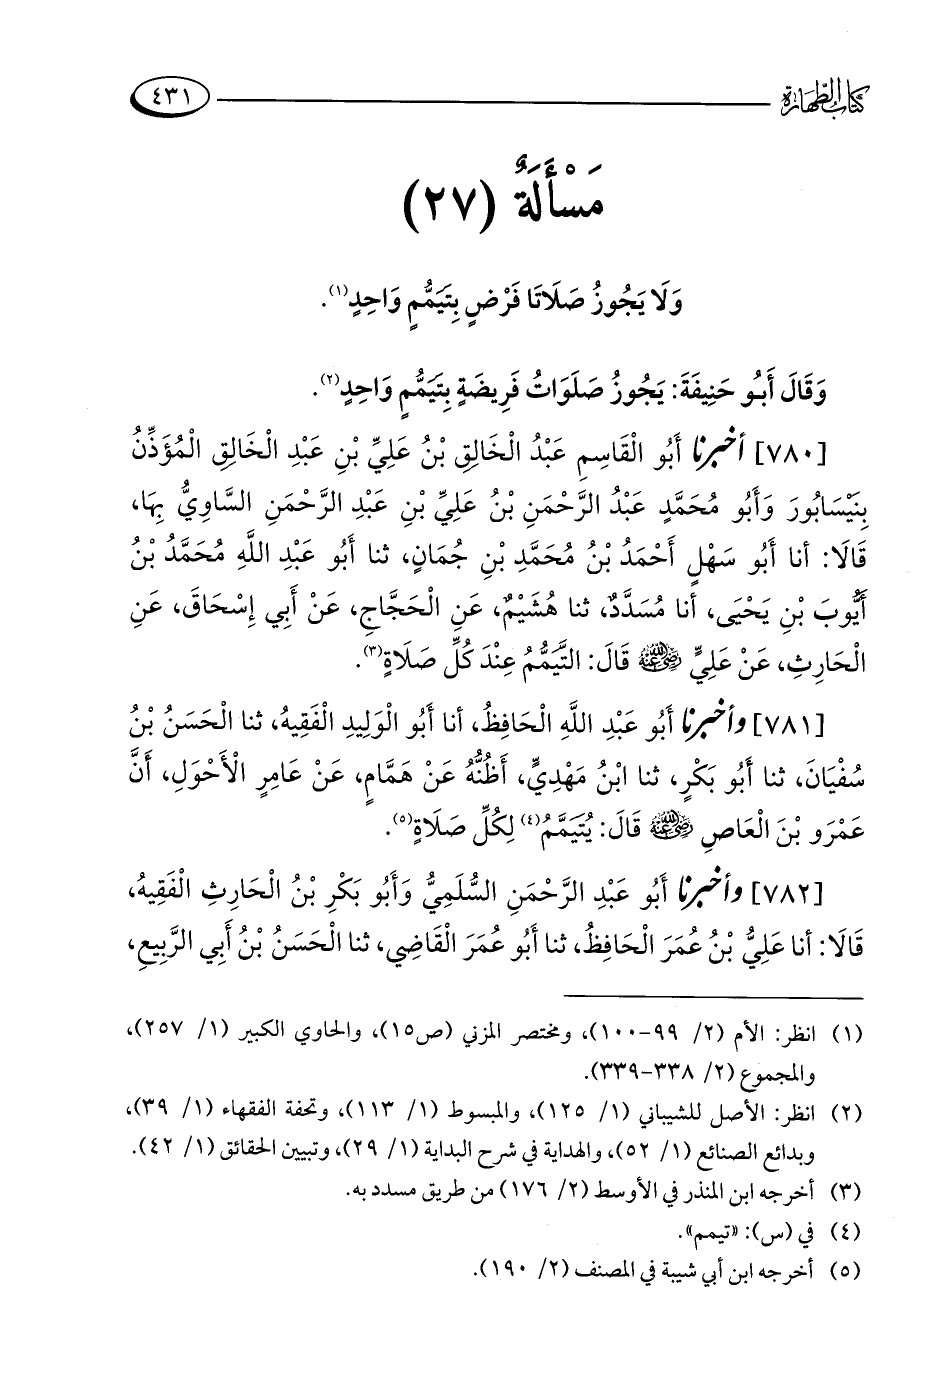 كتاب الطهارة ٤٣١
مَسْأَلَةٌ (٢٧)
وَلَا يَجُوزُ صَلَاتَا فَرْضٍ بِتَيَمُّمٍ وَاحِدٍ(١).
وَقَالَ أَبُو حَنِيفَةَ: يَجُوزُ صَلَوَاتُ فَرِيضَةٍ بِتَيَمُّمٍ وَاحِدٍ(٢).
[٧٨٠] أخبرنا أَبُو الْقَاسِمِ عَبْدُ الْخَالِقِ بْنُ عَلِيِّ بْنِ عَبْدِ الْخَالِقِ الْمُؤَذِّنُ
بِنَيْسَابُورَ وَأَبُو مُحَمَّدٍ عَبْدُ الرَّحْمَنِ بْنُ عَلِيِّ بْنِ عَبْدِ الرَّحْمَنِ السَّاوِيُّ بِهَا،
قَالَا: أنا أَبُو سَهْلٍ أَحْمَدُ بْنُ مُحَمَّدِ بْنِ جُمَانٍ، ثنا أَبُو عَبْدِ اللَّهِ مُحَمَّدُ بْنُ
أَيُّوبَ بْنِ يَحْيَى، أنا مُسَدَّدٌ، ثنا هُشَيْمٌ، عَنِ الْحَجَّاجِ، عَنْ أَبِي إِسْحَاقَ، عَنِ
الْحَارِثِ، عَنْ عَلِيٍّ رضي الله عنه قَالَ: التَّيَمُّمُ عِنْدَ كُلِّ صَلَاةٍ(٣).
[٧٨١] وأخبرنا أَبُو عَبْدِ اللَّهِ الْحَافِظُ، أنا أَبُو الْوَلِيدِ الْفَقِيهُ، ثنا الْحَسَنُ بْنُ
سُفْيَانَ، ثنا أَبُو بَكْرٍ، ثنا ابْنُ مَهْدِيٍّ، أَظُنُّهُ عَنْ هَمَّامٍ، عَنْ عَامِرٍ الْأَحْوَلِ، أَنَّ
عَمْرَو بْنَ الْعَاصِ رضي الله عنه قَالَ: يُتَيَمَّمُ(٤) لِكُلِّ صَلَاةٍ(٥).
[٧٨٢] وأخبرنا أَبُو عَبْدِ الرَّحْمَنِ السُّلَمِيُّ وَأَبُو بَكْرِ بْنُ الْحَارِثِ الْفَقِيهُ،
قَالَا: أنا عَلِيُّ بْنُ عُمَرَ الْحَافِظُ، ثنا أَبُو عُمَرَ الْقَاضِي، ثنا الْحَسَنُ بْنُ أَبِي الرَّبِيعِ،
(١) انظر: الأم (٢/ ٩٩-١٠٠)، ومختصر المزني (ص١٥)، والحاوي الكبير (١/ ٢٥٧)،
والمجموع (٢/ ٣٣٨-٣٣٩).
(٢) انظر: الأصل للشيباني (١/ ١٢٥)، والمبسوط (١/ ١١٣)، وتحفة الفقهاء (١/ ٣٩)،
وبدائع الصنائع (١/ ٥٢)، والهداية في شرح البداية (١/ ٢٩)، وتبيين الحقائق (١/ ٤٢).
(٣) أخرجه ابن المنذر في الأوسط (٢/ ١٧٦) من طريق مسدد به.
(٤) في (س): «تيمم».
(٥) أخرجه ابن أبي شيبة في المصنف (٢/ ١٩٠).